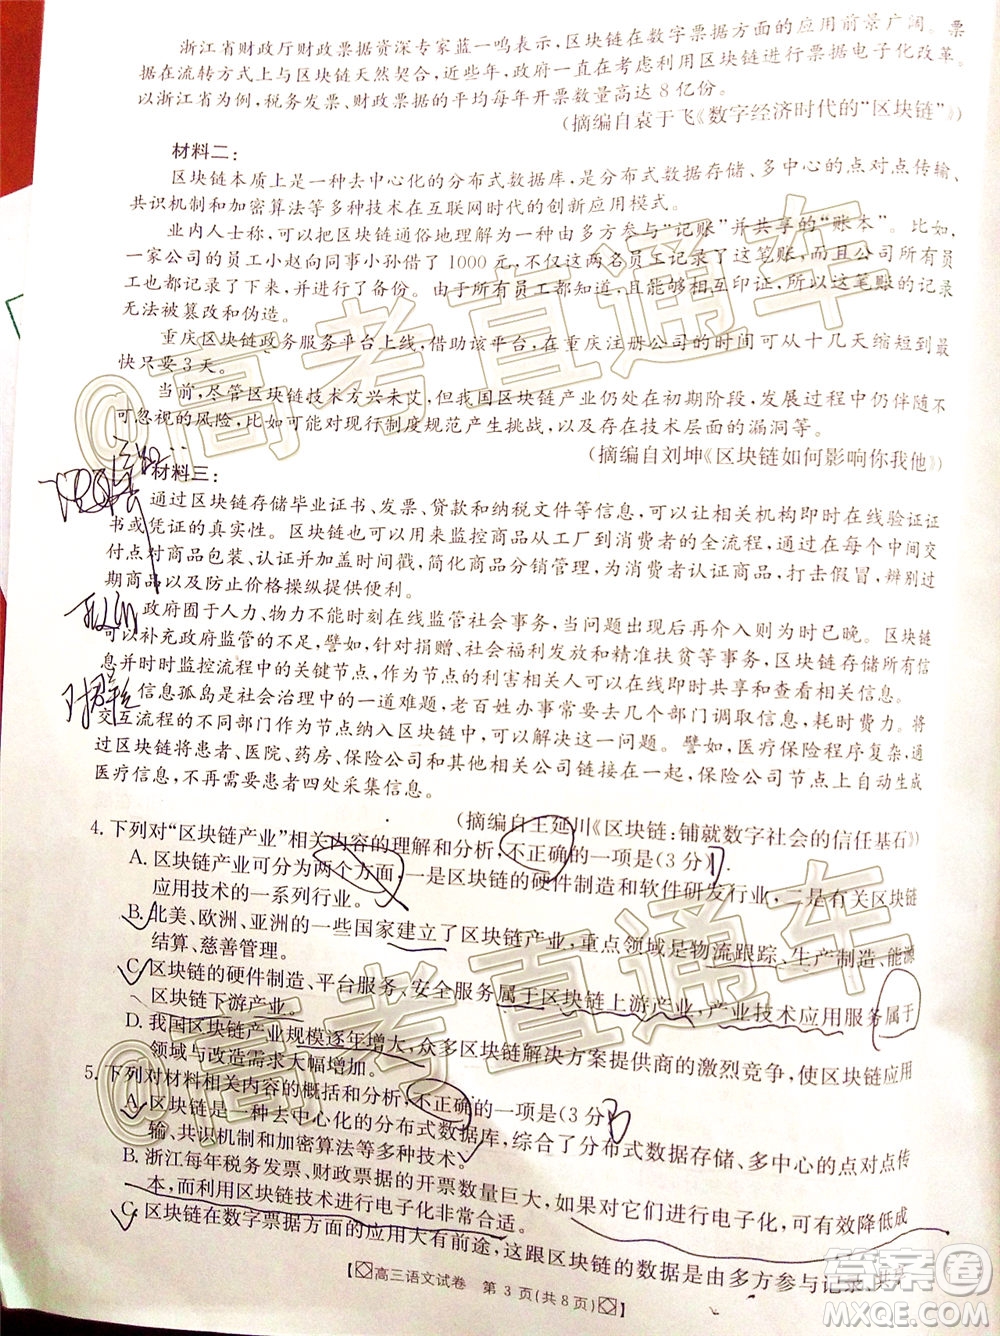 浙江省财政厅财政票据资深专家蓝一鸣表示,区块链在数字票据方面的应用前景广阔。票
据在流转方式上与区块链天然契合,近些年,政府一直在考虑利用区块链进行票据电子化改革。
以浙江省为例,税务发票、财政票据的平均每年开票数量高达8亿份。
(摘编自袁于飞《数字经济时代的“区块链”》)
材料二:
区块链本质上是一种去中心化的分布式数据库,是分布式数据存储、多中心的点对点传输、
共识机制和加密算法等多种技术在互联网时代的创新应用模式。
业内人士称,可以把区块链通俗地理解为一种由多方参与“记账”并共享的“账本”。比如,
一家公司的员工小赵向同事小孙借了1000元,不仅这两名员工记录了这笔账,而且公司其他员
工也都记录了下来,并进行了备份。由于所有员工都知道,且能够相互印证,所以这笔账的记录
无法被篡改和伪造。
重庆区块链政务服务平台上线,借助该平台,在重庆注册公司的时间可从十几天缩短到最
快只要3天。
当前,尽管区块链技术方兴未艾,但我国区块链产业仍处在初期阶段,发展过程之中仍伴随不
可忽视的风险,比如可能对现行制度规范产生挑战,以及存在技术层面的漏洞等。
(摘编自刘坤《区块链如何影响你我他》)
材料三:
通过区块链存储毕业证书、发票、贷款和纳税文件等信息,可以让相关机构即时在线验证证
书或凭证的真实性。区块链也可以用来监控商品从工厂到消费者的全流程,通过在每个中间交
付点对商品包装、认证并加盖时间戳,简化商品分销管理,为消费者认证商品,打击假冒,辨别过
期商品以及防止价格操纵提供便利。
政府囿于人力、物力不能时刻在线监管社会事务,当问题出现后再介入则为时已晚。区块链
可以补充政府监管的不足,譬如,针对捐赠、社会福利发放和精准扶贫等事务,可以通过区块链信
息并时时监控流程中的关键节点,作为节点的利害相关人可以在线即时共享和查看信息。
信息孤岛是社会治理中的一道难题,老百姓办事常要去几个部门调取信息,耗时费力。将
交互流程的不同部门作为节点纳入区块链中,可以解决这一问题。譬如,医疗保险程序复杂,通
过区块链将患者、医院、药房、保险公司和其他相关公司链接在一起,保险公司节点上自动生成
医疗信息,不再需要患者四处采集信息。
(摘编自王延川《区块链:铺就数字社会的信任基石》)
4. 下列对“区块链产业”相关内容的理解和分析,不正确的一项是(3分) D
A. 区块链产业可分为两个方面,一是区块链的硬件制造和软件研发行业,二是有关区块链
应用技术的一系列行业。
B. 北美、欧洲、亚洲的一些国家建立了区块链产业,重点领域是物流跟踪、生产制造、能源
结算、慈善管理。
C. 区块链的硬件制造、平台服务、安全服务属于区块链上游产业,产业技术应用服务属于
区块链下游产业。
D. 我国区块链产业规模逐年增大,众多区块链解决方案提供商的激烈竞争,使区块链应用
领域与改造需求大幅增加。
5. 下列对材料相关内容的概括和分析,不正确的一项是(3分) B
A. 区块链是一种去中心化的分布式数据库,综合了分布式数据存储、多中心的点对点传
输、共识机制和加密算法等多种技术。
B. 浙江每年税务发票、财政票据的开票数量巨大,如果对它们进行电子化,可有效降低成
本,而利用区块链技术进行电子化非常合适。
C. 区块链在数字票据方面的应用大有前途,这跟区块链的数据是由多方参与记录、共
【高三语文试卷 第 3 页(共 8 页)】
@高考直通车
@高考直通车
答案圈
MXQE.COM